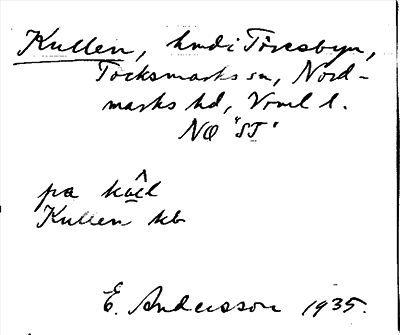 Kullen, hmd i Töresbyn,
Töcksmarks sn, Nord-
marks hd, Vrml l.
NO "ST"
på
Kullen kb
E. Andersson 1935.